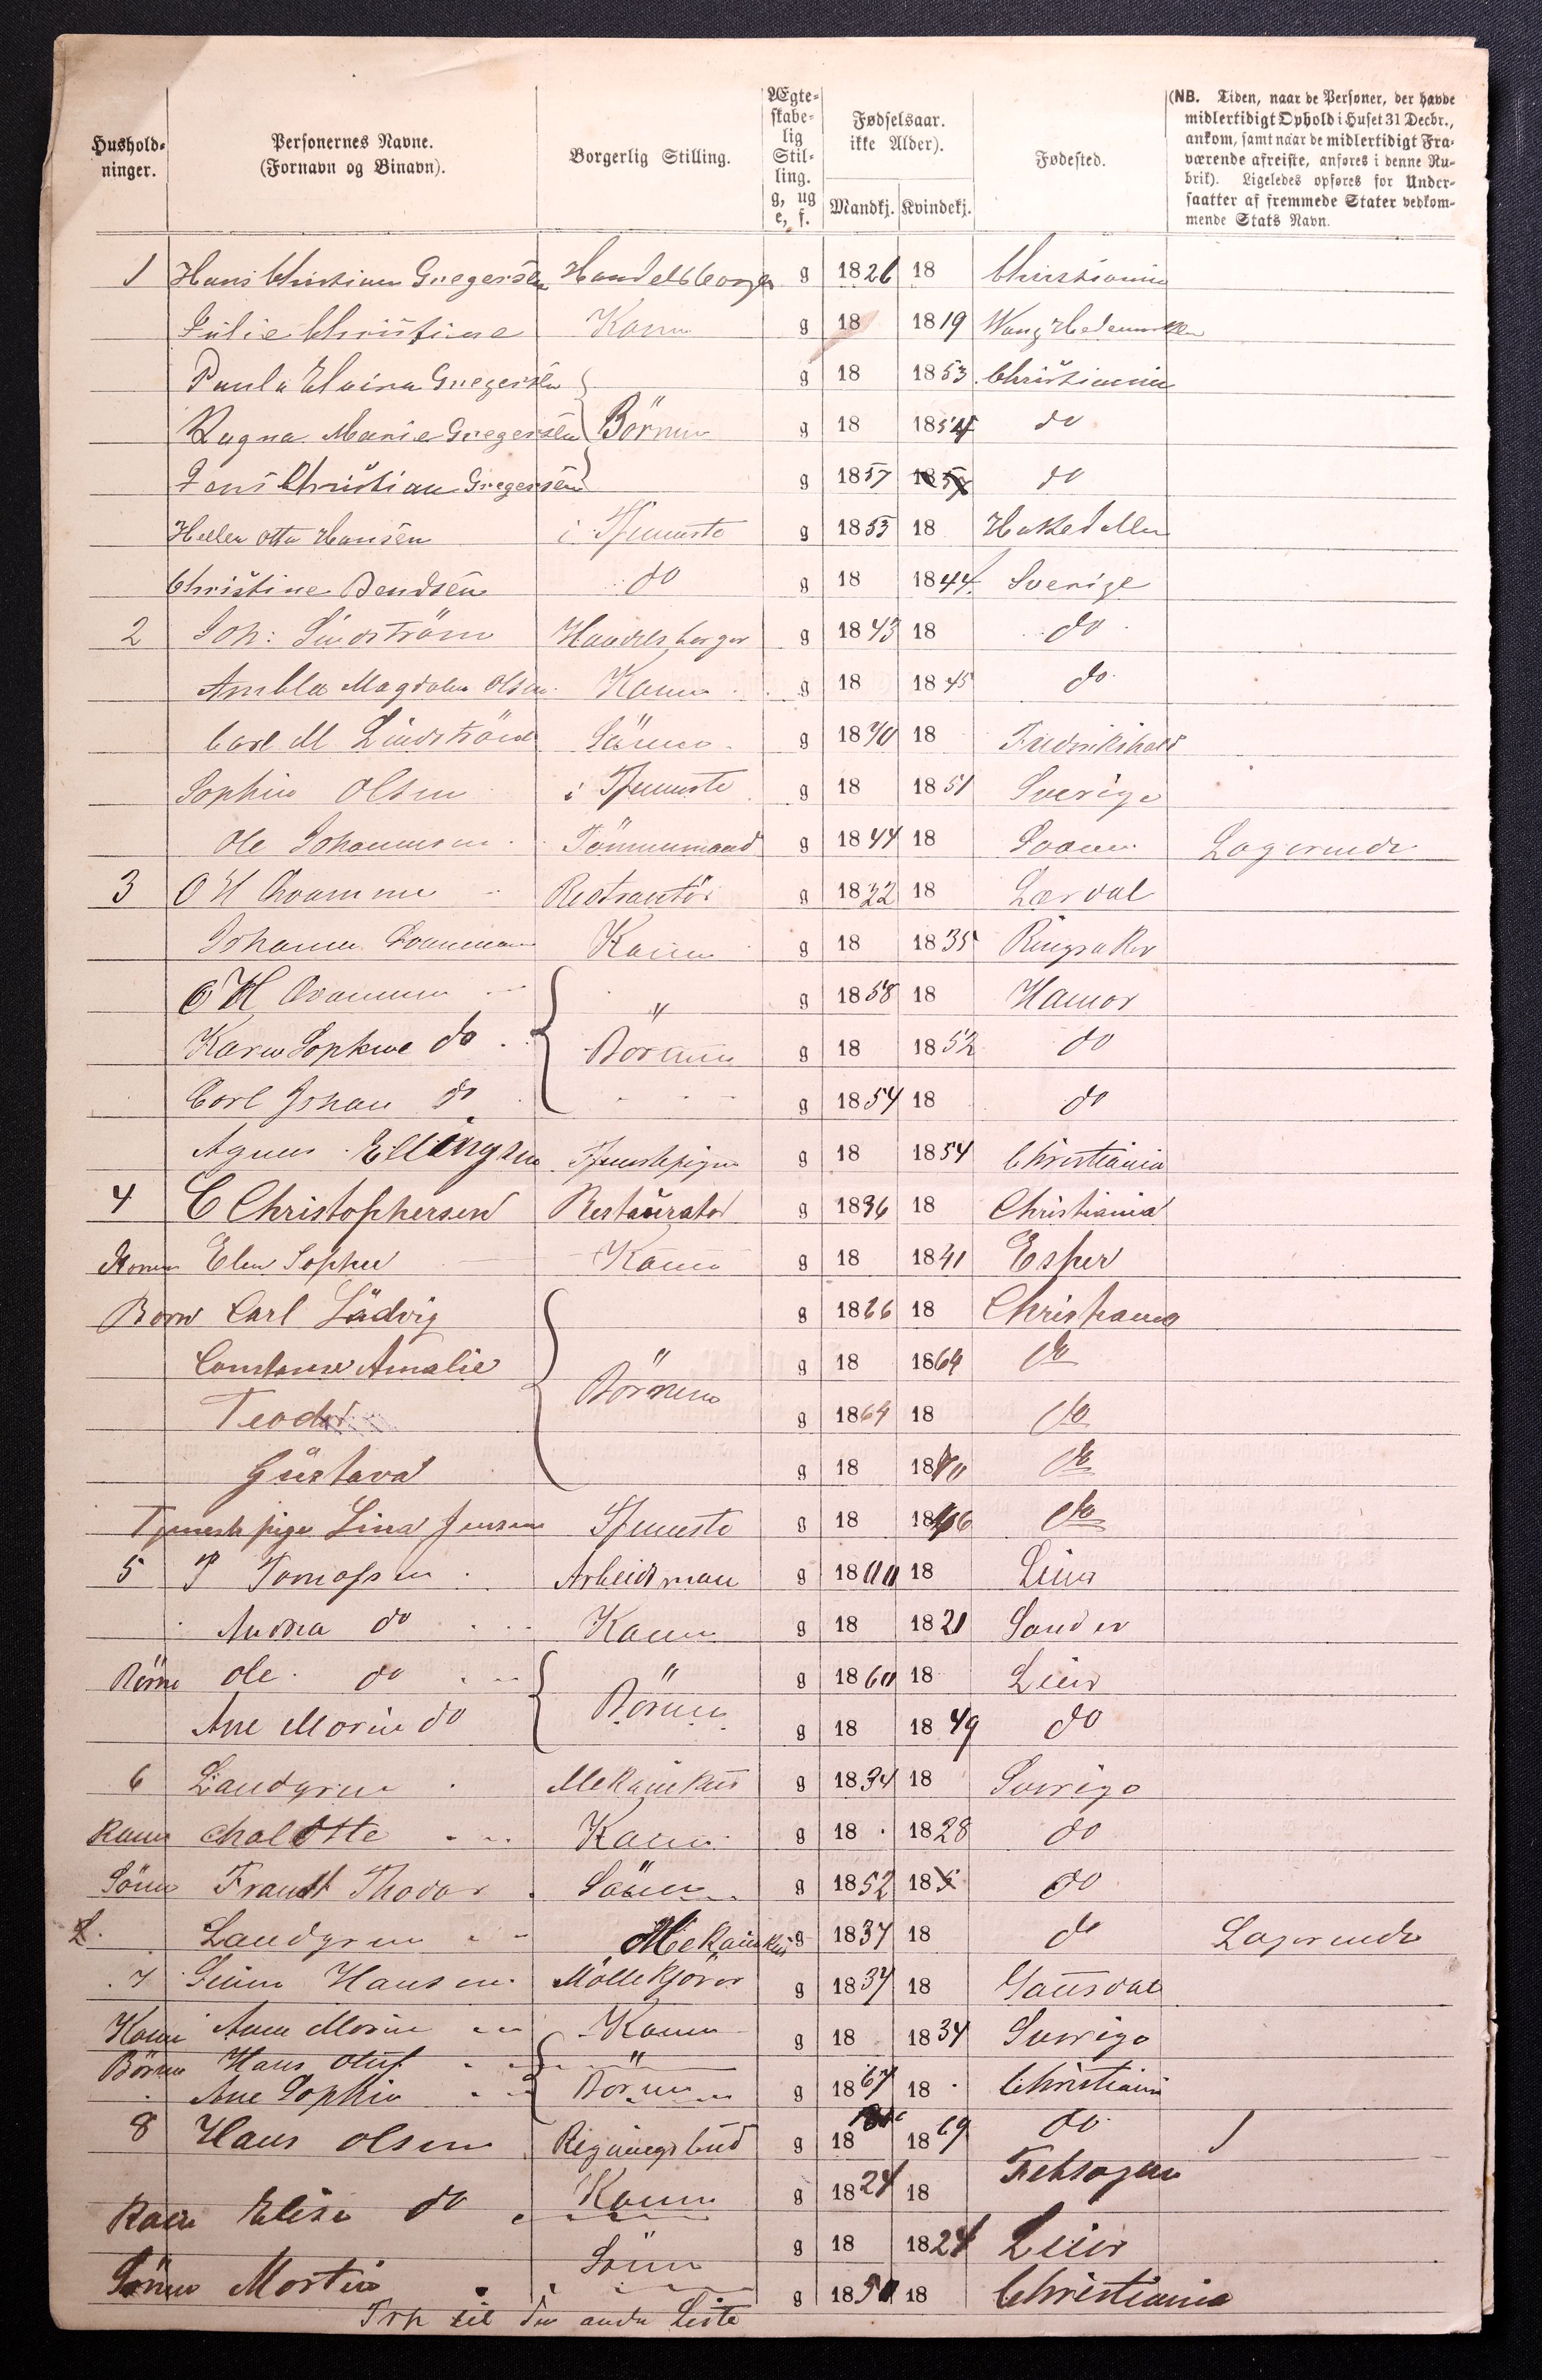 Hushold-
ninger.
Personernes Navne.
(Fornavn og Binavn).
Borgerlig Stilling.
Ægte-
skabe-
lig
Stil-
ling.
g, ug
e, f.
Fødselsaar.
ikke Alder).
Mandkj. Kvindekj.
Fødested.
(NB. Tiden, naar de Personer, der havde
midlertidigt Ophold i Huset 31 Decbr.,
ankom, samt naar de midlertidigt Fra-
værende afreiste, anføres i denne Ru-
brik). Ligeledes opføres for Under-
saatter af fremmede Stater vedkom-
mende Stats Navn.
1 Hans Christian Gregersen Handelsborger g 1826 18 Christiania
Julie Christine Kone g 18 1819 Wang Hedemarken
Paula Elvina Gregersen g 18 1853 Christiania
Ragna Marie Gregersen Börnene g 18 1854 do
Jens Christian Gregersen g 1857 do
Helle Otto Hansen i Tjeneste g 1853 18 Hakedallen
Christine Bendsen do g 18 1844 Sverige
2 Joh: Lindström Handelsborger g 1843 18 do
Magdalen Olsen Kone g 18 1845 do
Carl M Lindström Sönn g 1870 18 Fredrikshald
Sophie Olsen i Tjeneste g 18 1851 Sverige
Ole Johannesen Tömmermand g 1844 18 Logerende
3 O H Qvamme g 1832 18 Lærdal
Johanne Kone g 18 1835 Ringsaker
O H Qvamme " g 1858 18 Hamar
Karen Sophie do Börnene g 18 1852 do
Carl Johan do g 1854 18 do
Agnes Ellingsen Tjenestepige g 18 1854 Christiania
4 C Christophersen Restauratør g 1836 18 Christiania
Konen Elen Sophie Kone g 18 1841 Esper
Born Carl Ludvig g 1866 18 Christiania
Constanse Amalie Börnene g 18 1864 do
Teodor g 1864 18 do
Gustava g 18 1870 do
Tjeneste pige Lina Jensen Tjeneste g 18 do
5 P Tomassen Arbeidsman g 1800 18 Lier
Andrea do Kone g 18 1821 Sander
Börn Ole do " g 1860 18 Lier
Ane Marie do Börnene g 18 1849 do
6 Landgren Mekanikus g 1834 18 Sverige
Kone Chalotte Kone g 18 1828 do
Sönn Frandt Thodor Sönn g 1852 18 do
L. Landgren Mekanikus g 1837 18 do Logerende
7 Hansen Möllekjörer g 1837 18 Gausdal
Kone Anne Marie Kone g 18 1834 Sverige
Börn Hans Oluf "
Ane Sophie Börnene g 1867 18 Christiania
8 Hans Olsen Regningsbud g 18 1869 do
Kone g 1824 18 Fetsogen
Kone Elise do
Sönn g 18 1824 Lier
Sönn Martin g 1850 18 Christiania
til den anden Liste